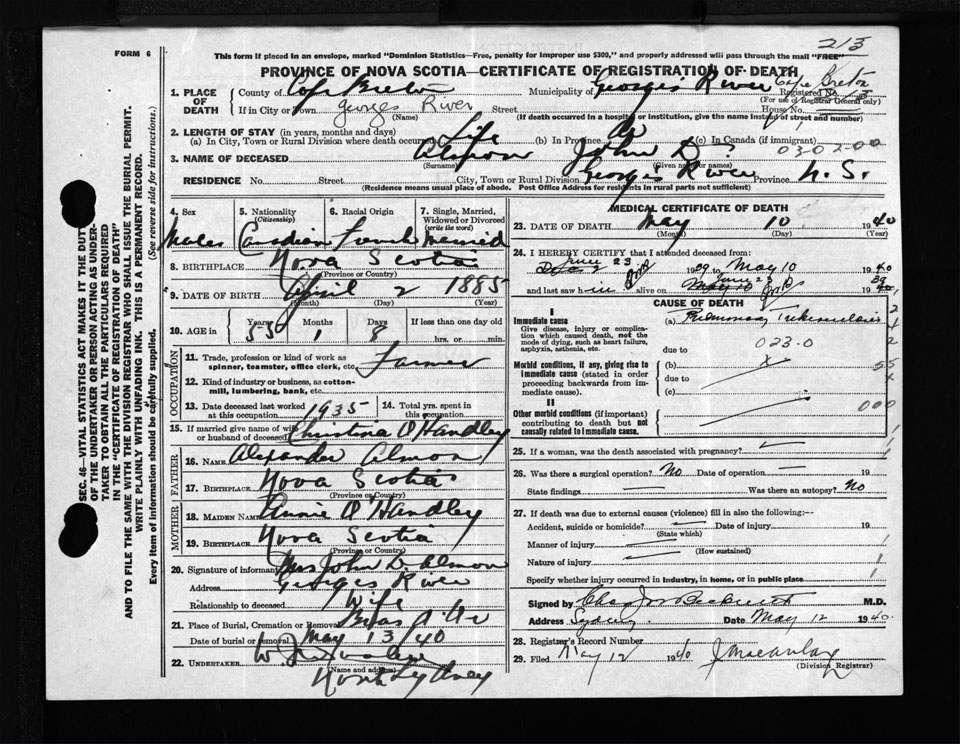 213
FORM 6
This form if placed in an envelope, marked "Dominion Statistics—Free, penalty for improper use $300," and properly addressed will pass through the mail "FREE"
PROVINCE OF NOVA SCOTIA—CERTIFICATE OF REGISTRATION OF DEATH
1. PLACE OF DEATH County of Cape Breton Municipality of Georges River Cape Breton Registered No. 3
(For use of Registrar General only)
If in City or Town Georges River Street House No.
(Name) (If death occurred in a hospital or institution, give the name instead of street and number)
2. LENGTH OF STAY (in years, months and days)
(a) In City, Town or Rural Division where death occurred Life (b) In Province (c) In Canada (if immigrant)
03-02-00
3. NAME OF DECEASED John D.
(Surname) (Given name or names)
RESIDENCE No. Street City, Town or Rural Division Georges River Province N. S.
(Residence means usual place of abode. Post Office Address for residents in rural parts not sufficient)
4. Sex Male
5. Nationality (Citizenship) Canadian
6. Racial Origin French
7. Single, Married, Widowed or Divorced (write the word) Married
8. BIRTHPLACE Nova Scotia
(Province or Country)
9. DATE OF BIRTH April 2 1885
(Month) (Day) (Year)
10. AGE in Years 55 Months 1 Days 8 If less than one day old hrs. or min.
OCCUPATION
11. Trade, profession or kind of work as spinner, teamster, office clerk, etc. Farmer
12. Kind of industry or business, as cotton-mill, lumbering, bank, etc.
13. Date deceased last worked at this occupation 1935
14. Total yrs. spent in this occupation
15. If married give name of wife or husband of deceased Christina O'Handley
FATHER
16. NAME Alexander Almon
17. BIRTHPLACE Nova Scotia
(Province or Country)
MOTHER
18. MAIDEN NAME Annie O'Handley
19. BIRTHPLACE Nova Scotia
(Province or Country)
20. Signature of informant Mrs John D. Almon
Address Georges River
Relationship to deceased Wife
21. Place of Burial, Cremation or Removal
Date of burial or removal May 13/40
22. UNDERTAKER
(Name and address)
North Sydney
MEDICAL CERTIFICATE OF DEATH
23. DATE OF DEATH May 10 1940
(Month) (Day) (Year)
24. I HEREBY CERTIFY that I attended deceased from:
June 23 1939 to May 10 1940
and last saw h im alive on June 23 1939
CAUSE OF DEATH
I
Immediate cause
Give disease, injury or complication which caused death, not the mode of dying, such as heart failure, asphyxia, asthenia, etc.
(a) Pulmonary Tuberculosis
due to
023-0
Morbid conditions, if any, giving rise to immediate cause (stated in order proceeding backwards from immediate cause).
(b)
due to
(c)
II
Other morbid conditions (if important) contributing to death but not causally related to immediate cause.
000
25. If a woman, was the death associated with pregnancy?
26. Was there a surgical operation? No Date of operation 19
State findings Was there an autopsy? No
27. If death was due to external causes (violence) fill in also the following:—
Accident, suicide or homicide? Date of injury 19
(State which)
Manner of injury
(How sustained)
Nature of injury
Specify whether injury occurred in industry, in home, or in public place
Signed by M.D.
Address Sydney. Date May 12 1940
28. Registrar's Record Number
29. Filed May 12 1940 J Macaulay
(Division Registrar)
SEC. 46—VITAL STATISTICS ACT MAKES IT THE DUTY
OF THE UNDERTAKER OR PERSON ACTING AS UNDERTAKER TO OBTAIN ALL THE PARTICULARS REQUIRED
IN THE "CERTIFICATE OF REGISTRATION OF DEATH"
AND TO FILE THE SAME WITH THE DIVISION REGISTRAR WHO SHALL ISSUE THE BURIAL PERMIT.
WRITE PLAINLY WITH UNFADING INK. THIS IS A PERMANENT RECORD.
Every item of information should be carefully supplied. (See reverse side for instructions.)